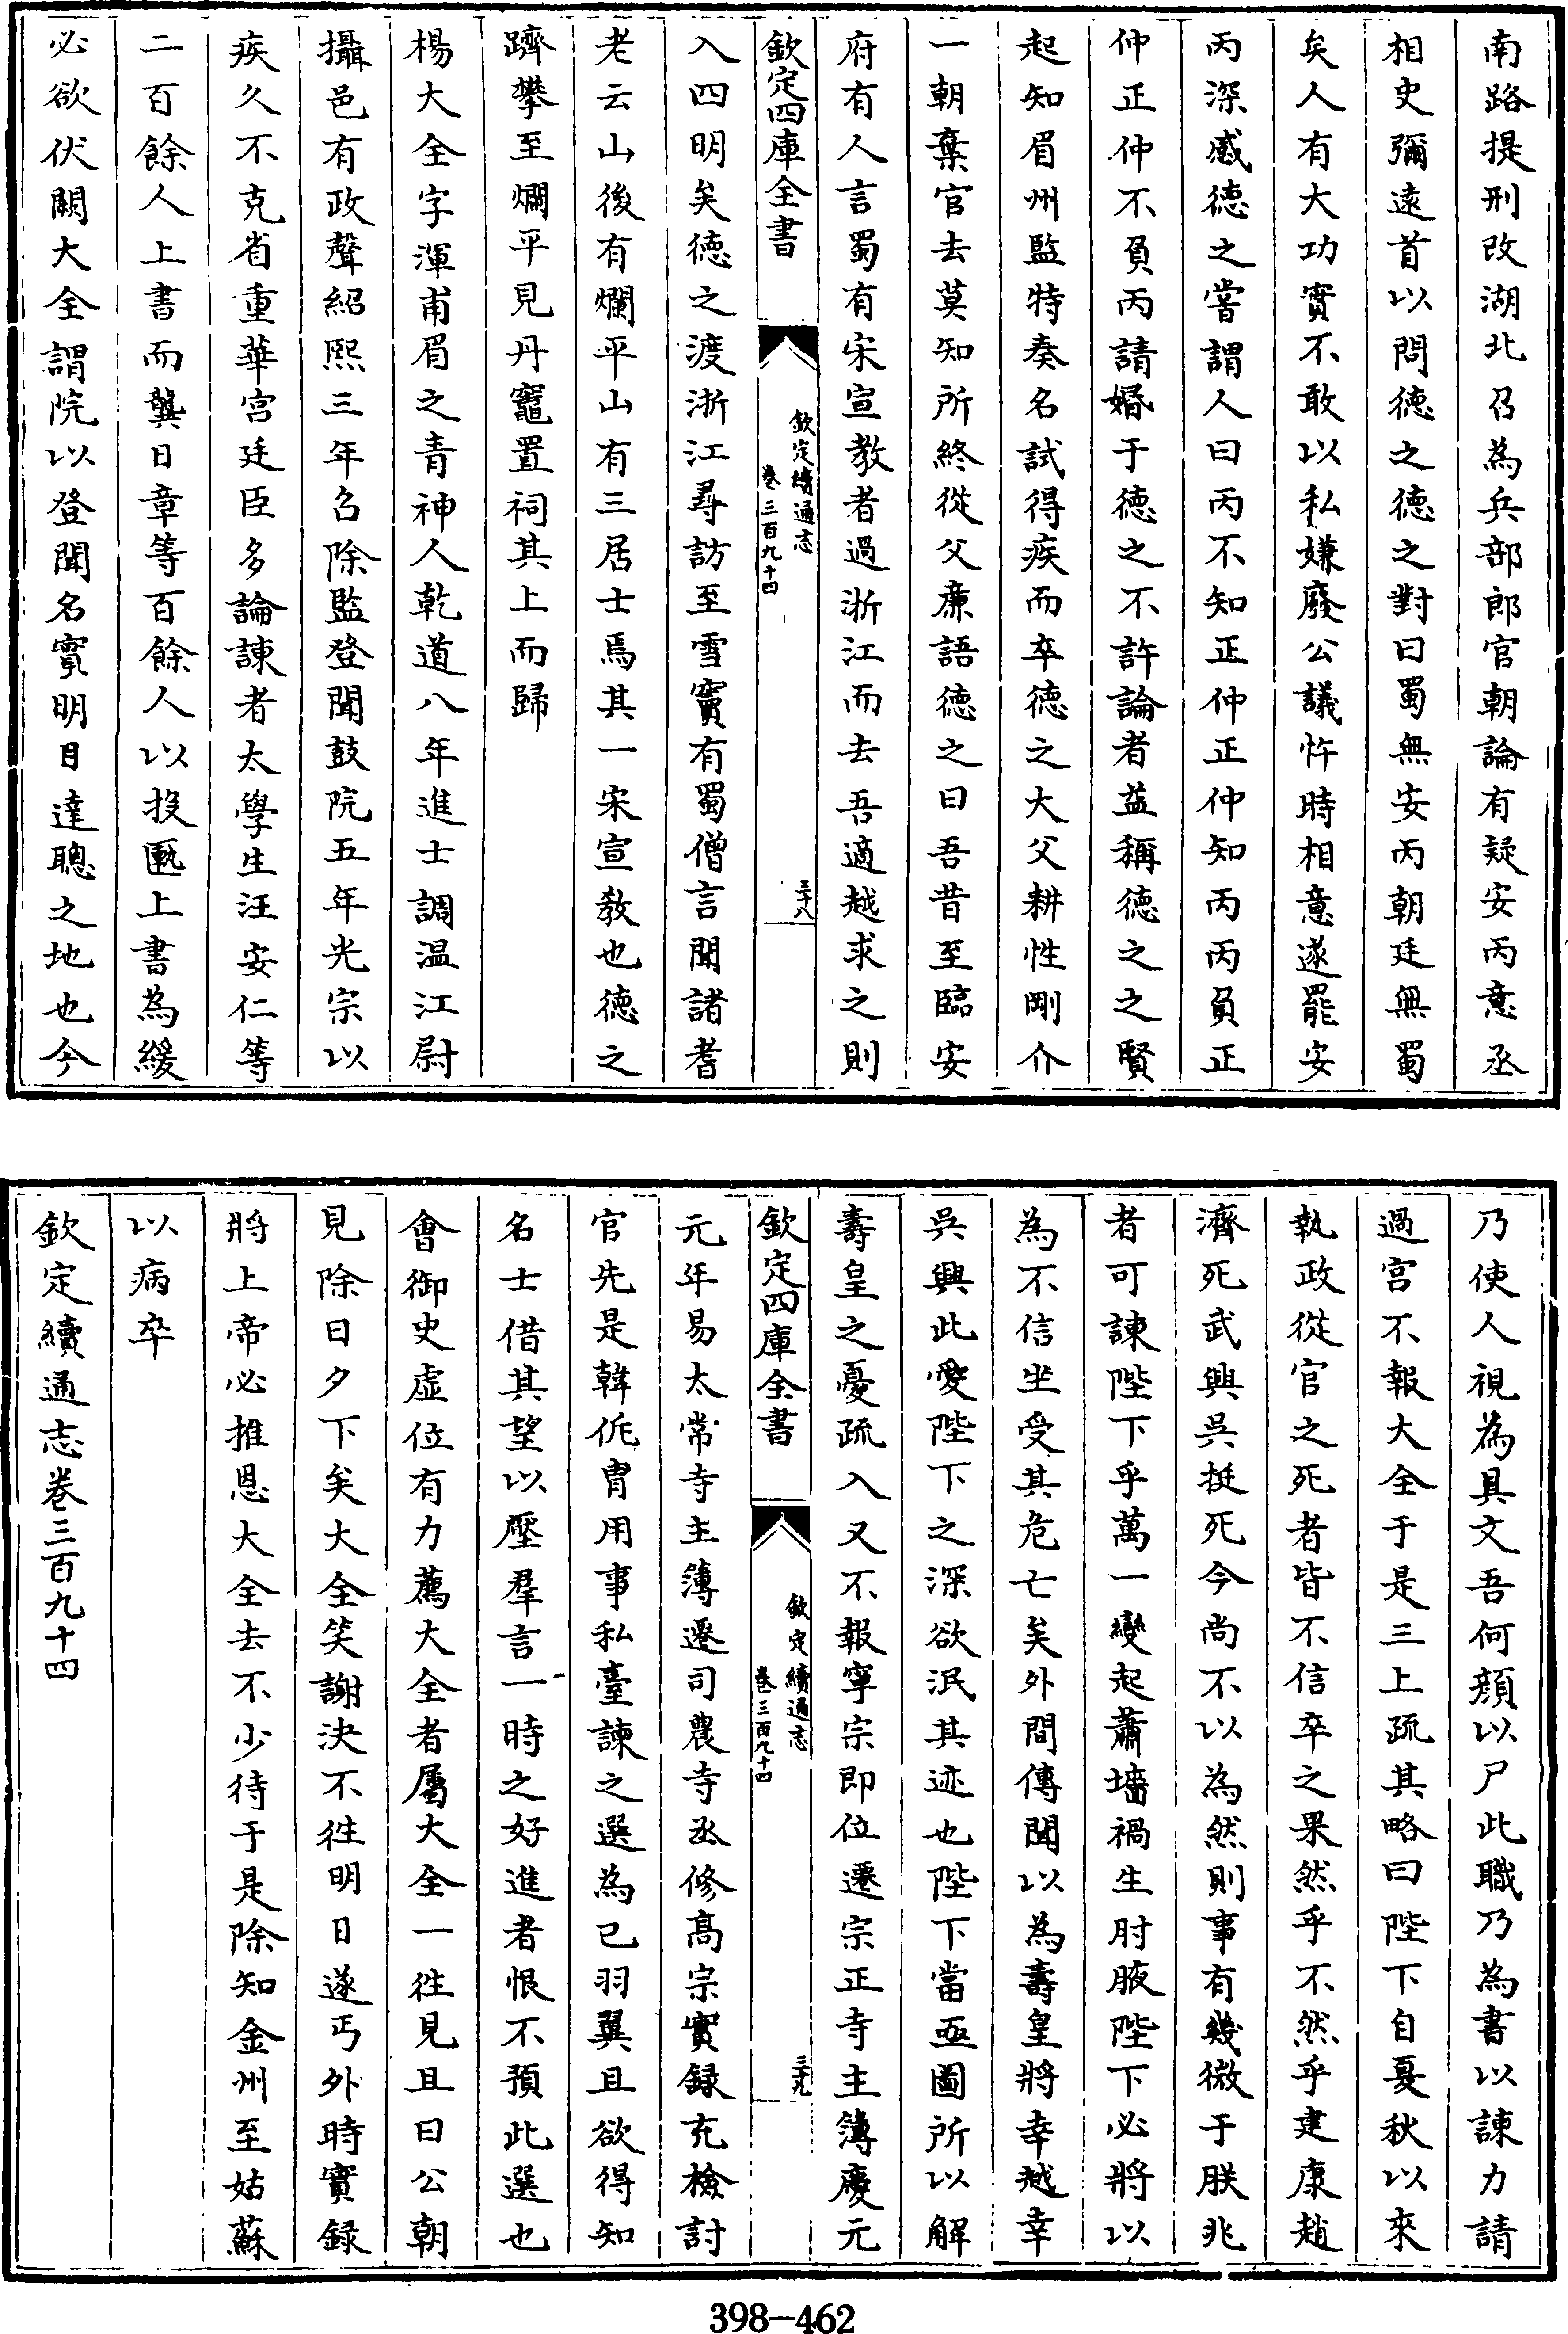 南路提刑改湖北召為兵部郎官朝論有疑安丙意丞
相史彌遠首以問德之德之對曰蜀無安丙朝廷無蜀
矣人有大功實不敢以私嫌廢公議忤時相意遂罷安
丙深感德之嘗謂人曰丙不知正仲正仲知丙丙負正
仲正仲不負丙請婚于德之不許論者益稱德之之賢
起知眉州監特奏名試得疾而卒德之大父耕性剛介
一朝棄官去莫知所終從父廉語德之曰吾昔至臨安
府有人言蜀有宋宣教者過浙江而去吾適越求之則
欽定四庫全書
欽定續通志
卷三百九十四
三十八
入四明矣德之渡浙江尋訪至雪竇有蜀僧言聞諸耆
老云山後有爛平山有三居士焉其一宋宣教也德之
躋攀至爛平見丹竈置祠其上而歸
楊大全字渾甫眉之青神人乾道八年進士調温江尉
攝邑有政聲紹熙三年召除監登聞鼓院五年光宗以
疾久不克省重華宮廷臣多論諫者太學生汪安仁等
二百餘人上書而龔日章等百餘人以投匭上書為緩
必欲伏闕大全謂院以登聞名實明目達聰之地也今
乃使人視為具文吾何顏以尸此職乃為書以諫力請
過宮不報大全于是三上疏其略曰陛下自夏秋以來
執政從官之死者皆不信卒之果然乎不然乎建康趙
濟死武興吳挺死今尚不以為然則事有幾微于朕兆
者可諫陛下乎萬一變起蕭墻禍生肘腋陛下必將以
為不信坐受其危亡矣外間傳聞以為壽皇將幸越幸
吳興此愛陛下之深欲泯其迹也陛下當亟圖所以解
壽皇之憂疏入又不報寧宗即位遷宗正寺主簿慶元
欽定四庫全書
欽定續通志
卷三百九十四
三十九
元年易太常寺主簿遷司農寺丞修髙宗實録充檢討
官先是韓侂胄用事私臺諫之選為已羽翼且欲得知
名士借其望以壓羣言一時之好進者恨不預此選也
會御史虛位有力薦大全者屬大全一徃見且曰公朝
見除日夕下矣大全笑謝決不徃明日遂丐外時實録
將上帝必推恩大全去不少待于是除知金州至姑蘇
以病卒
欽定續通志卷三百九十四
398-462